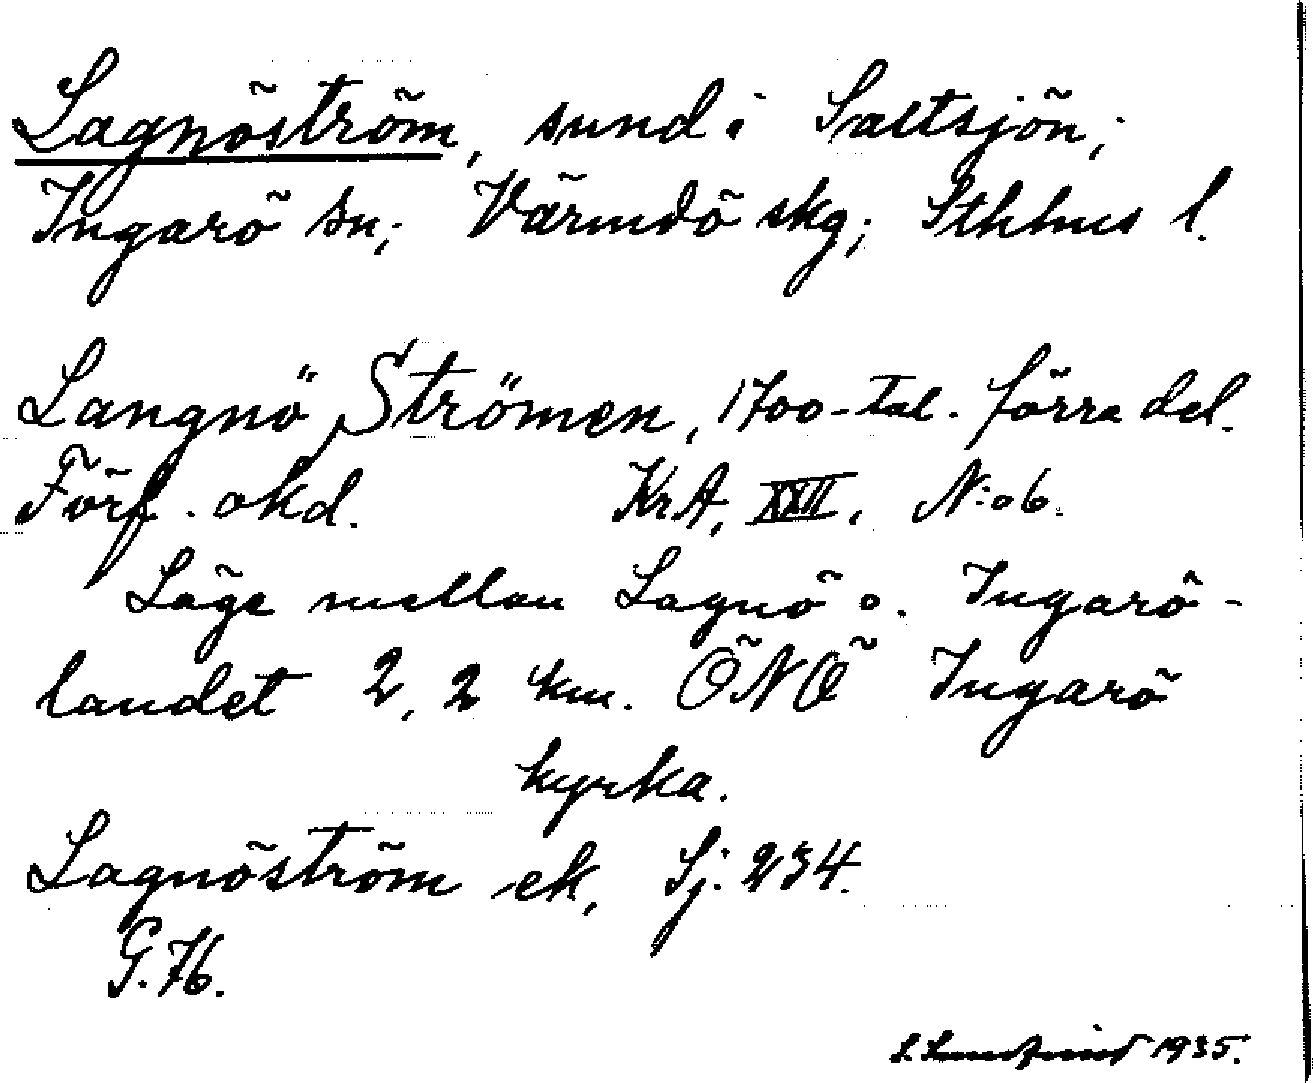 Lagnöström, sund i Saltsjön;
Ingarö sn; Värmdö skg; Sthlms l.
Langnö Strömen, 1700-tal. förra del.
Förf. okd. KrA, XXII, N:o 6.
Läge mellan Lagnö o. Ingarö-
landet 2,2 km. ÖNÖ Ingarö
kyrka.
Lagnöström ek, Sj. 234.
G. 76.
1935.